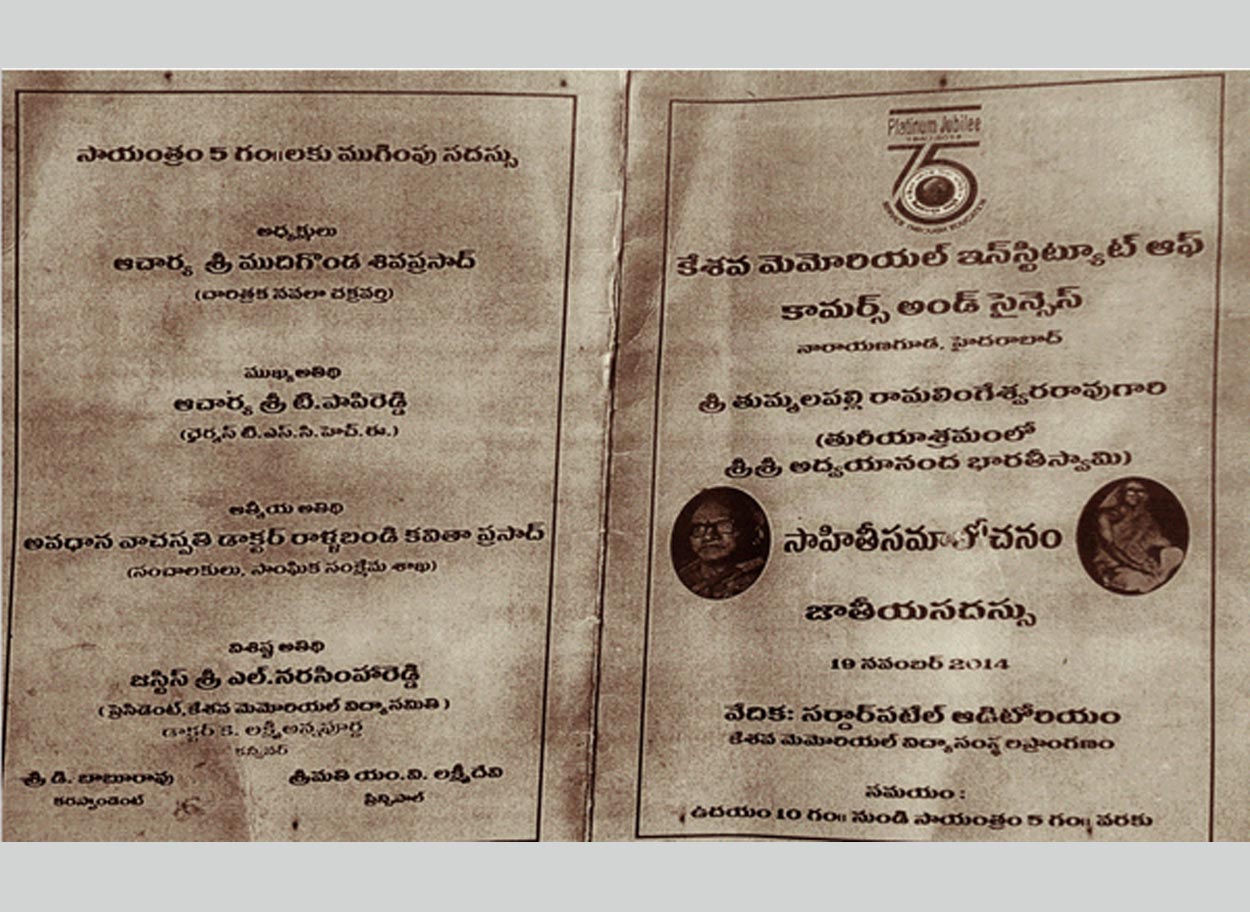 సాయంత్రం 5 గం॥లకు ముగింపు సదస్సు
అధ్యక్షులు
ఆచార్య శ్రీ ముదిగొండ శివప్రసాద్
(చారిత్రక నవలా చక్రవర్తి)
ముఖ్య అతిథి
ఆచార్య శ్రీ టి.పాపిరెడ్డి
(ఛైర్మన్ టి.ఎస్.సి.హెచ్.ఈ.)
ఆత్మీయ అతిథి
అవధాన వాచస్పతి డాక్టర్ రాళ్ళబండి కవితా ప్రసాద్
(సంచాలకులు, సాంఘిక సంక్షేమ శాఖ)
విశిష్ట అతిథి
జస్టిస్ శ్రీ ఎల్.నరసింహారెడ్డి
(ప్రెసిడెంట్, కేశవ మెమోరియల్ విద్యాసమితి)
డాక్టర్ కె. లక్ష్మీ అన్నపూర్ణ
కన్వీనర్
శ్రీ డి. బాబూరావు శ్రీమతి యం.వి. లక్ష్మీదేవి
కరస్పాండెంట్ ప్రిన్సిపాల్
Platinum Jubilee
75
SERVICE THROUGH EDUCATION
కేశవ మెమోరియల్ ఇన్‌స్టిట్యూట్ ఆఫ్
కామర్స్ అండ్ సైన్సెస్
నారాయణగూడ, హైదరాబాద్
శ్రీ తుమ్మలపల్లి రామలింగేశ్వరరావుగారి
(తురీయాశ్రమంలో
శ్రీశ్రీ అద్వయానంద భారతీస్వామి)
సాహితీసమాలోచనం
జాతీయసదస్సు
19 నవంబర్ 2014
వేదిక: సర్దార్‌పటేల్ ఆడిటోరియం
కేశవ మెమోరియల్ విద్యాసంస్థ లప్రాంగణం
సమయం :
ఉదయం 10 గం॥ నుండి సాయంత్రం 5 గం॥ వరకు